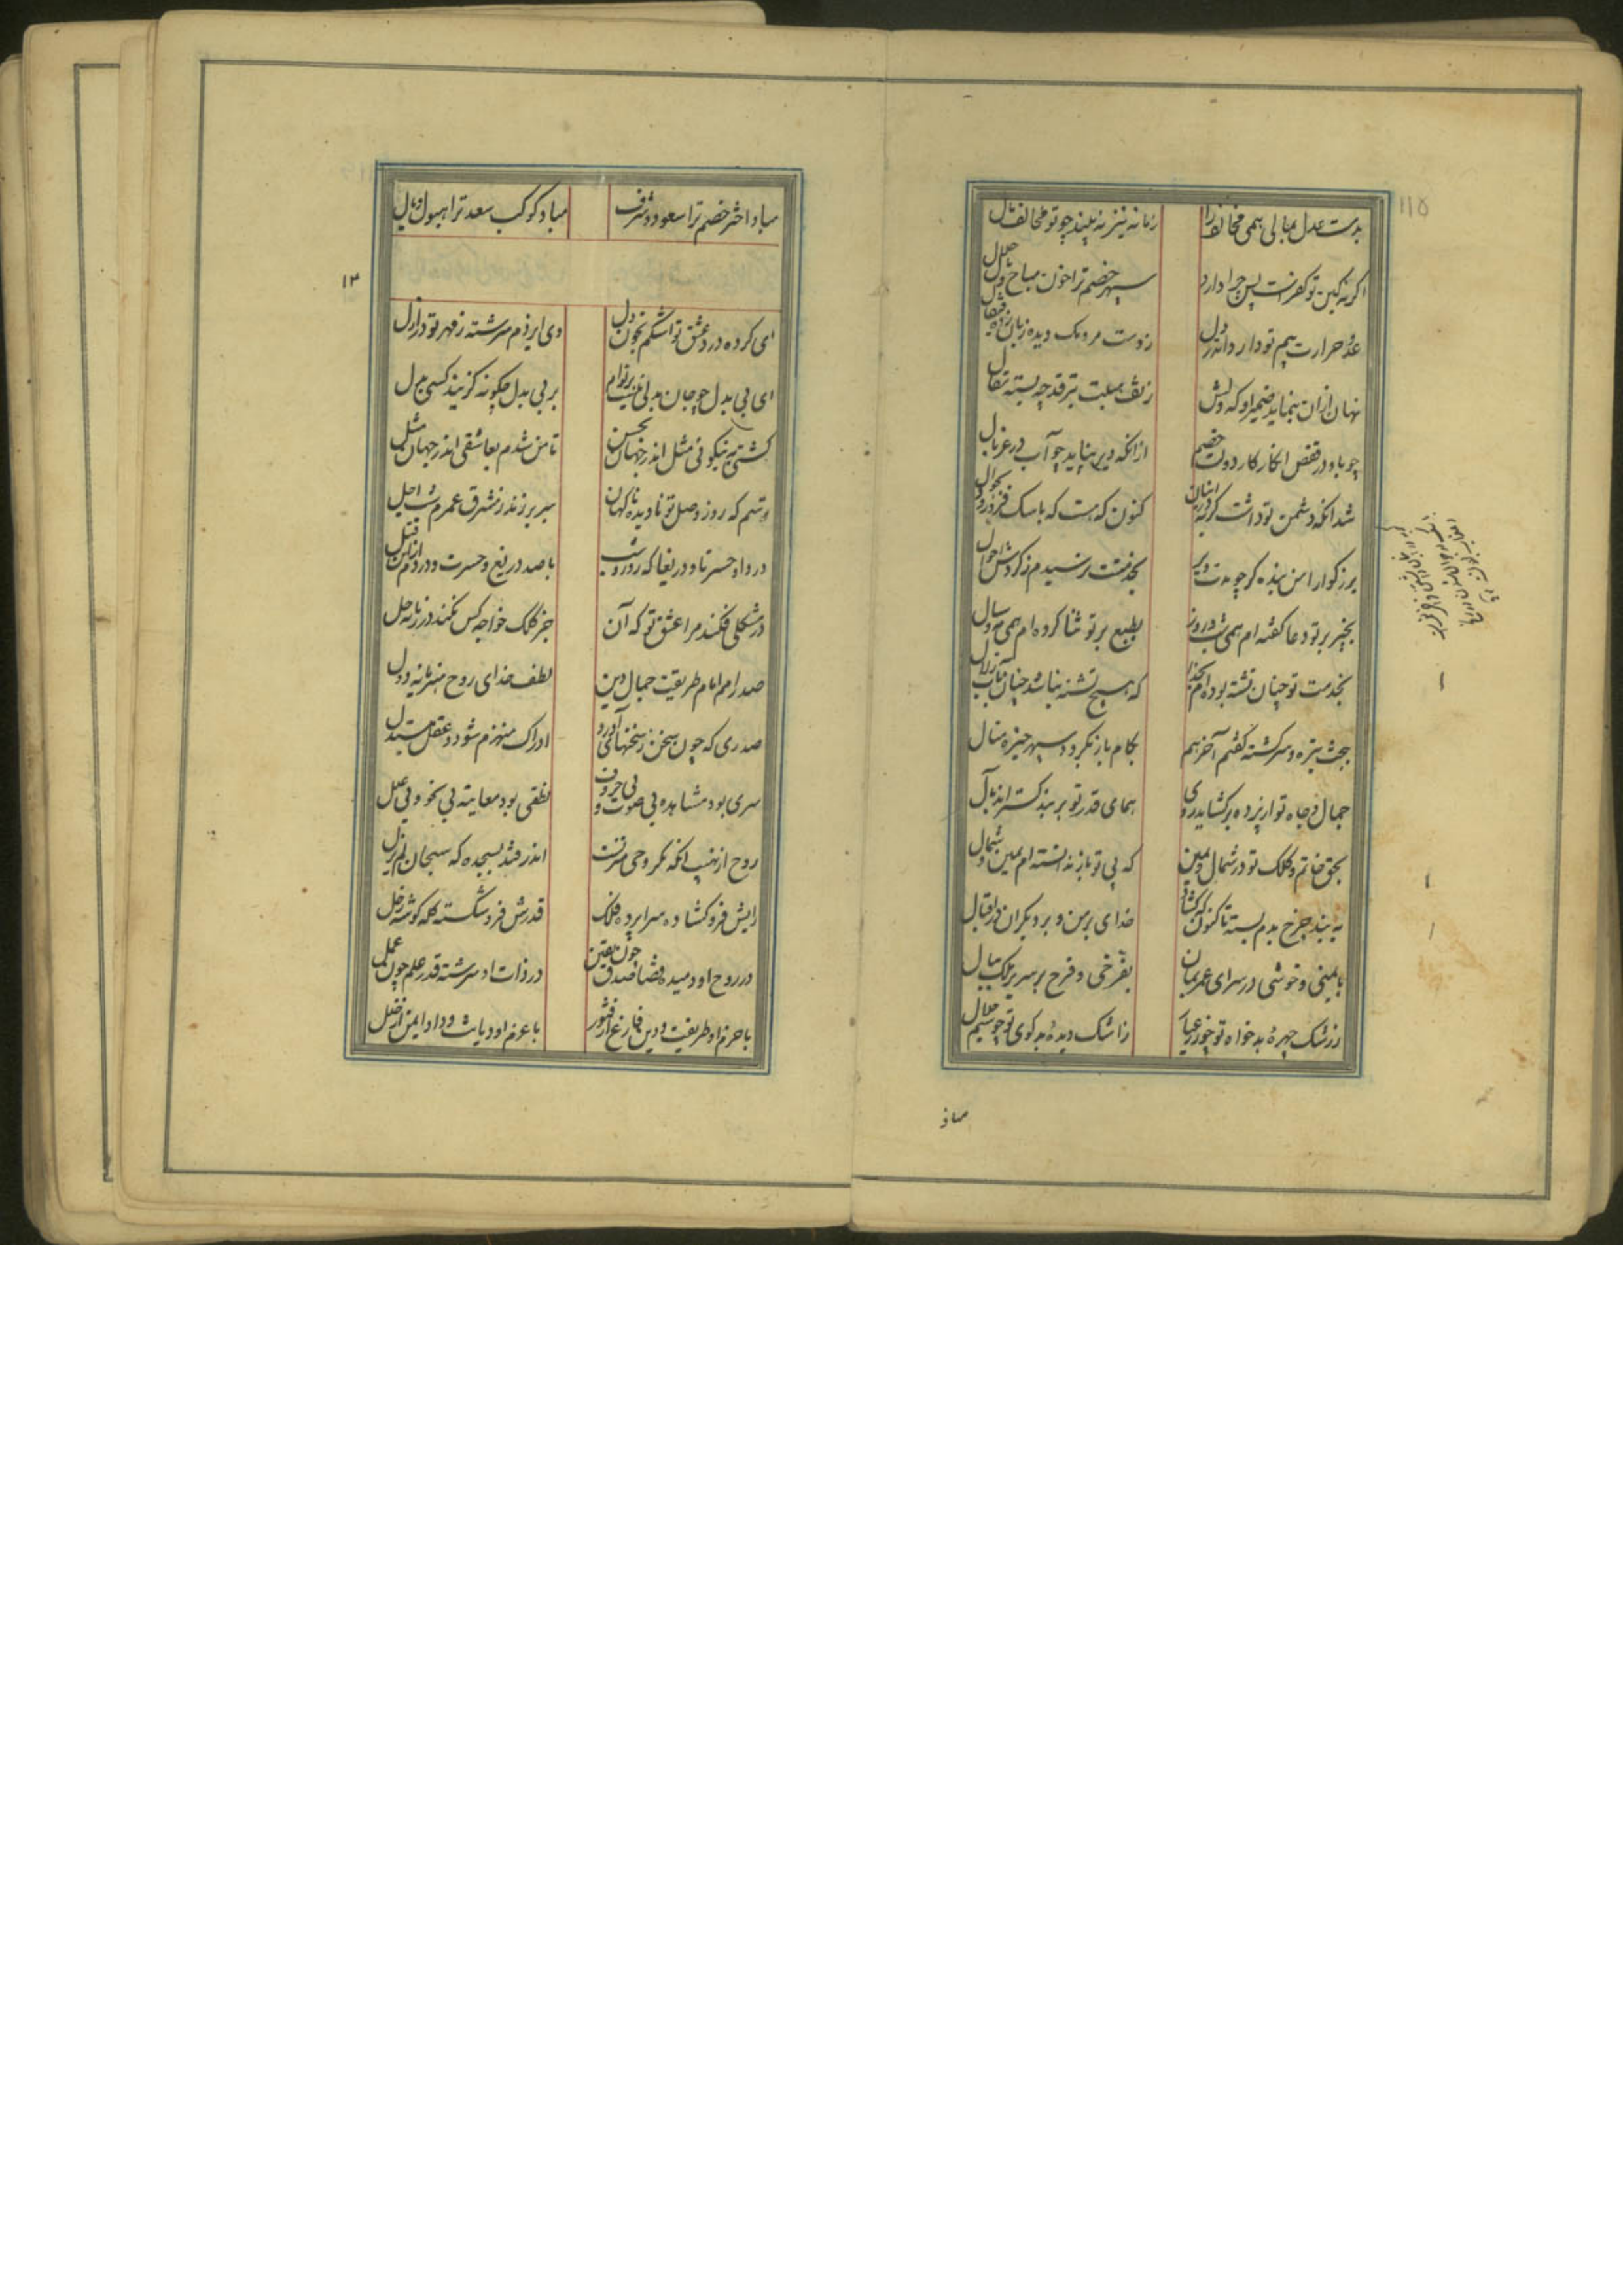 ۱۱۵
بدست عدل بمالی همی مخالف را زمانه نیز نه بیند چو تو مخالف مال
اگر نه کین تو کفرست پس چرا دارد سپهر خصم ترا خون مباح و مال حلال
عدو حرارت بیم تو دارد اندر دل
نهان ازان بنماید ضمیر او که دلش ز تف هیبت ترقد چو پسته
چو باد در قفص انکار کار دولت خصم از آنکه دیر نپاید چو آب در غربال
شد آنکه دشمن تو داشت کربه در انبان کنون که هست که با سک فرو رود بجوال
بزرگوارا من بنده گر چو مدت دیر بخدمتت نرسیدم ز گردش احوال
بخیر بر تو دعا گفته‌ام همی شب و روز بطبع بر تو ثنا کرده‌ام همی مه و سال
بخدمت تو چنان تشنه بوده‌ام بخدا که هیچ تشنه نباشد چنان بآب زلال
ببخت تیره و سرکشته گفتم آخر هم بکام باز نگردد سپهر خیره منال
جمال و جاه تو از پرده برگشاید روی همای قدر تو بر بنده گستراند بال
بحق خاتم و کلک تو در شمال و یمین که بی تو باز ندانسته‌ام یمین و شمال
به بند چرخ بدم بسته تا کنون که گشاد خدای بر من و بر دیگران در اقبال
بایمنی و خوشی در سرای عمر بمان بفرخی و فرح بر سریر ملک ببال
ز رشک چهره بدخواه تو چو زر عیار ز اشک دیده بدگوی تو چو سیم حلال
مباد
مباد اختر خصم ترا سعود و شرف مباد کوکب سعد ترا هبوط و وبال
۱۳
ای کرده درد عشق تو اشکم بخون بدل وی ایزدم سرشته ز مهر تو در ازل
ای بی بدل چو جان بدلی نیست بر توام بر بی بدل چگونه گزیند کسی بدل
گشتی به نیکوئی مثل اندر جهان بحسن تا من شدم بعاشقی اندر جهان مثل
ترسم که روز وصل تو نادیده ناگهان سر بر زند ز مشرق عمرم شب اجل
دردا و حسرتا و دریغا که روز و شب با صد دریغ و حسرت و دردم ازین قبل
در مشکلی فکند مرا عشق تو که آن جز کلک خواجه کس نکند در زمانه حل
صدر امم امام طریقت جمال دین لطف خدای روح هنر مایه دول
صدری که چون سخن ز سخنهای او رود ادراک منهزم شود و عقل مبتذل
سری بود مشاهده بی صوت و بی حروف نطقی بود معاینه بی نحو و بی علل
روح از نهیب آنکه مگر وحی منزلست اندر فتد بسجده که سبحان لم یزل
رایش فرو گشاده سراپرده فلک قدرش فرو شکسته کله گوشه زحل
در روح او دمیده قضا صدق چون یقین در ذات او سرشته قدر علم چون عمل
با حزم او طریقت و دین فارغ از فتور با عزم او دیانت و داد ایمن از خلل